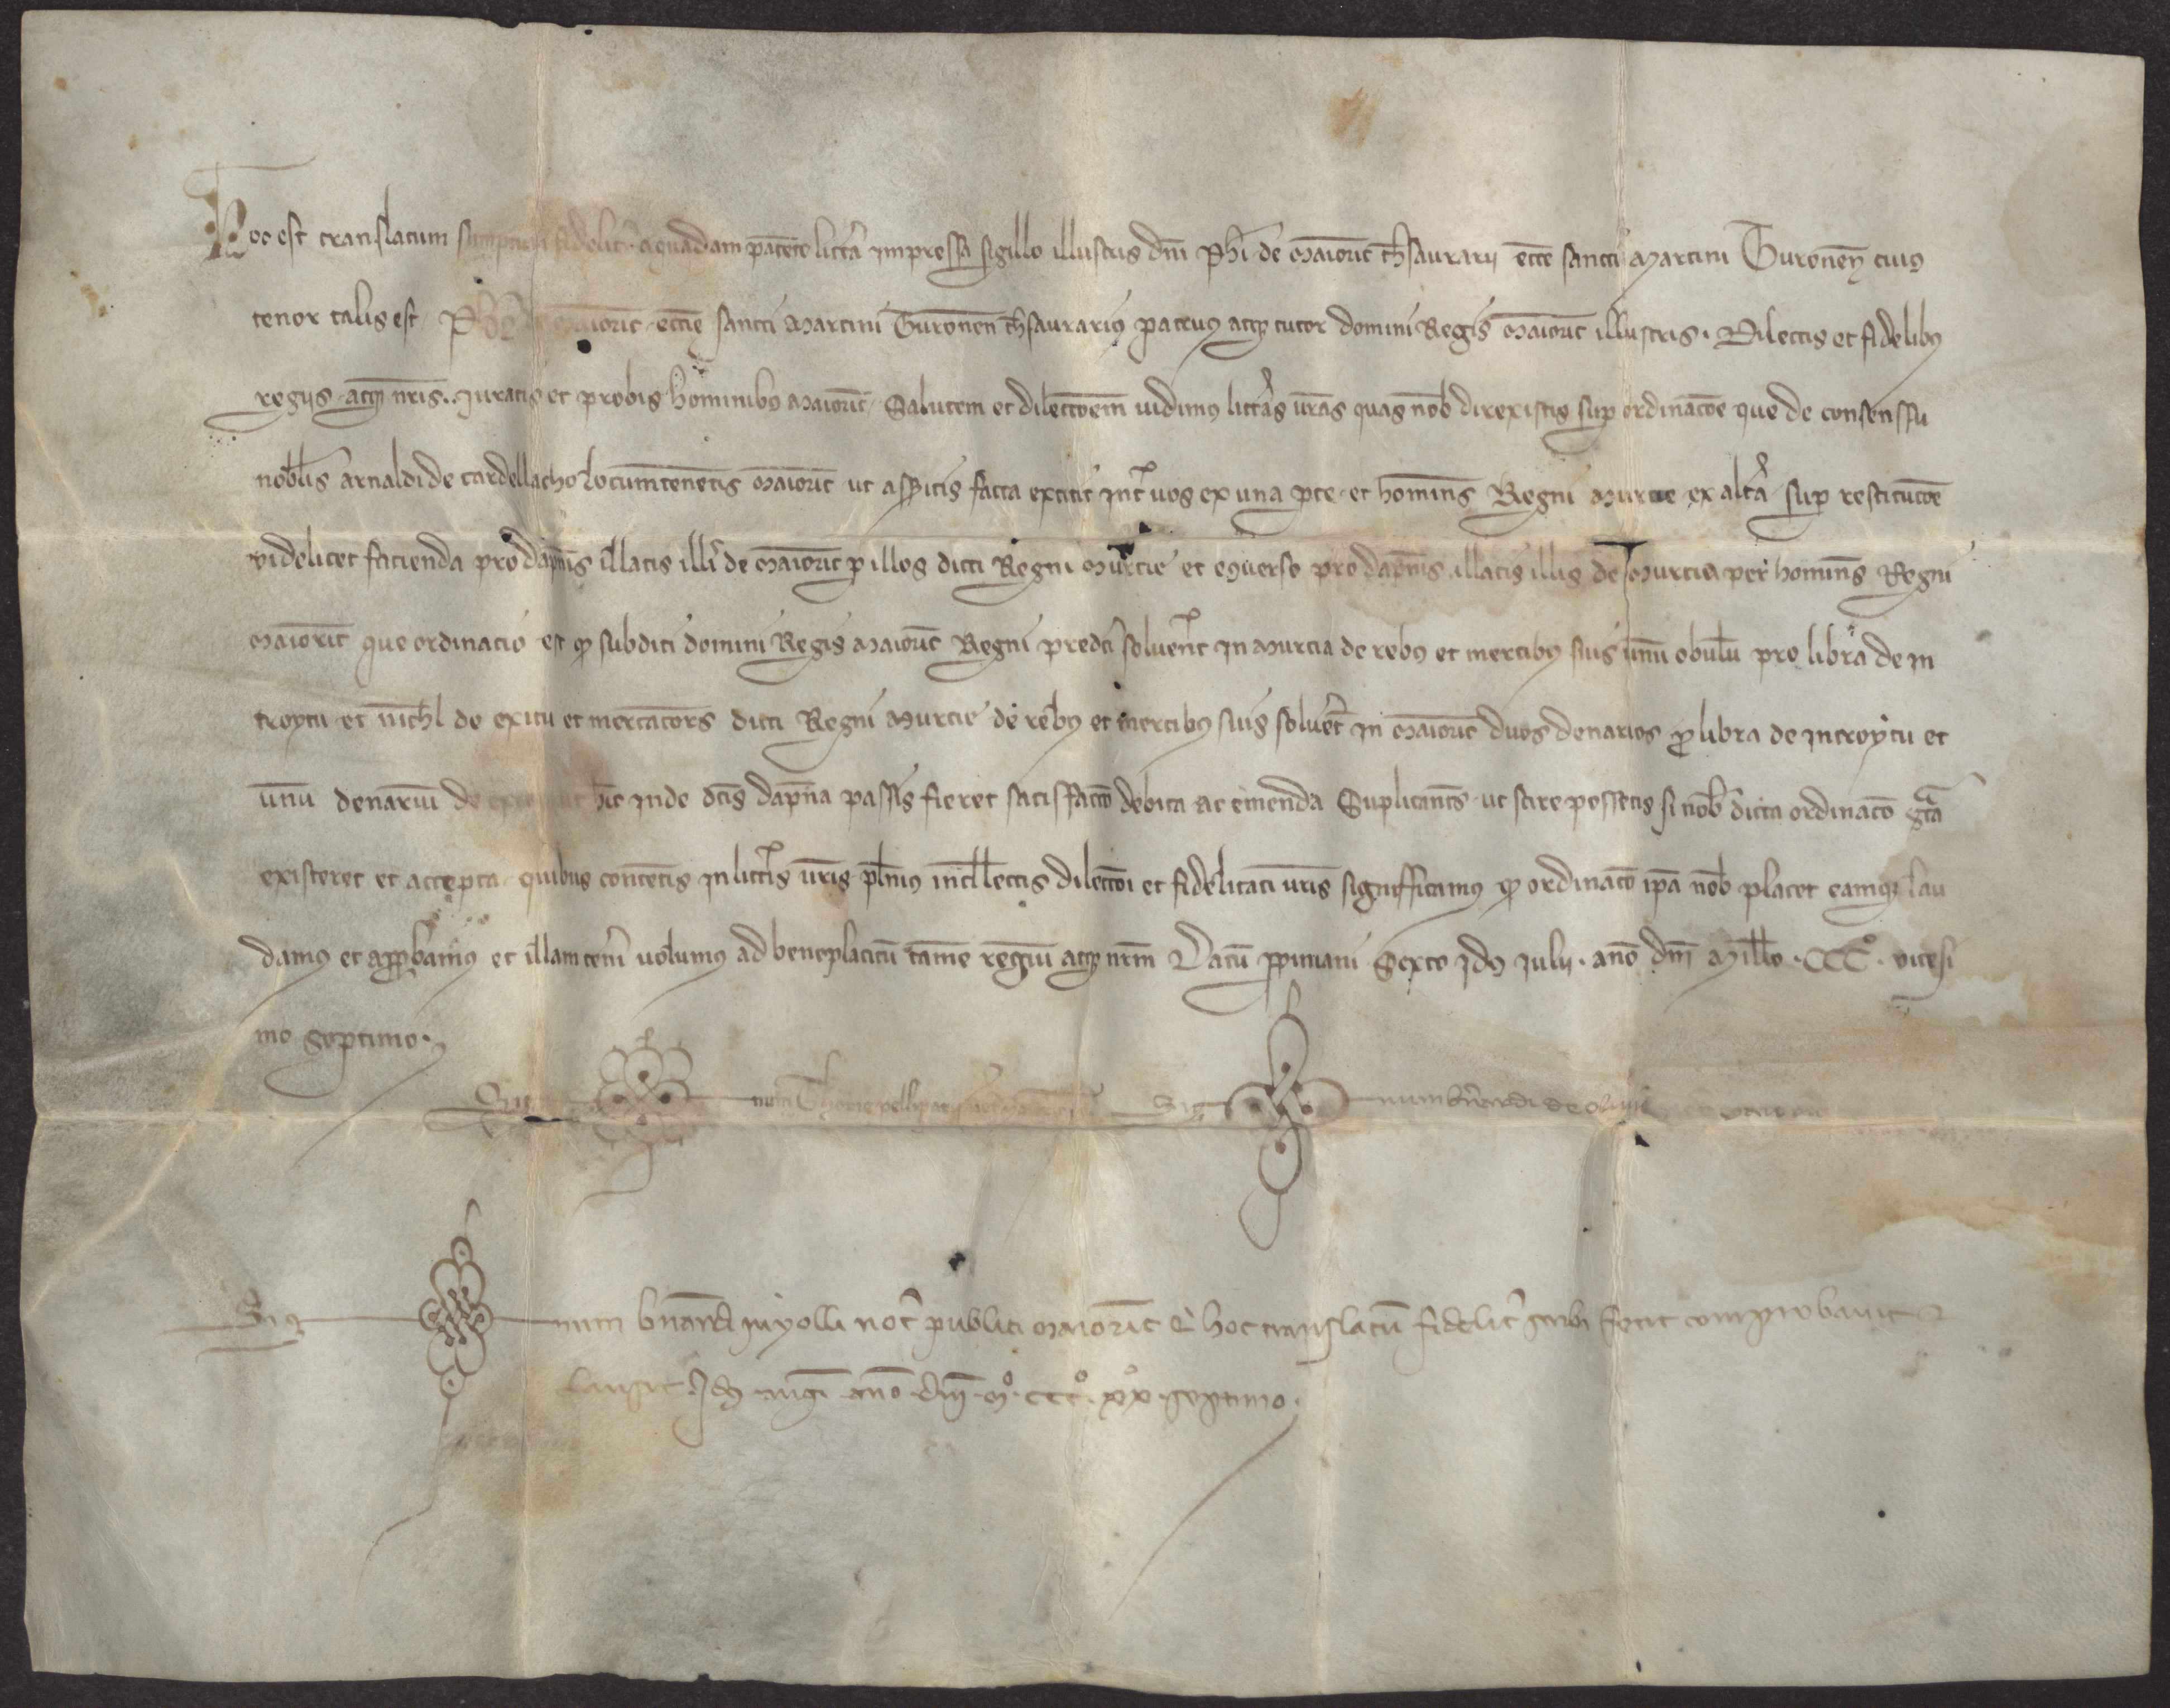 Hoc est translatum sumptum fideliť a quadam patēte litťa impressa sigillo illustris dñi Phi de Maioric̄ thesaurarii ecc̄e sancti Martini Turonen̄ cuiꝰ
tenor talis est Maioric̄ ecc̄ie sancti Martini Turonen̄ thesaurariꝰ patruꝰ atqꝫ tutor domini Regis Maioric̄ illustris. Dilectis et fidelibꝰ
regiis atqꝫ nr̄is. Juratis et probis hominibꝰ Maioric̄ Salutem et dilectōem vidimꝰ litťas vr̄as quas nob̄ direxistis suꝑ ordinacōe que de consenssu
nobl̄is arnaldi de cardellacho locumtenētis Maioric̄ ut asseritis facta extitit inť vos ex una ꝑte et homines Regni Murcie ex alťa suꝑ restitucōe
videlicet facienda pro dāpnis illatis illis de Maioric̄ ꝑ illos dicti Regni Murcie et eꝯverso pro dāpnis illatis illis de Murcia per homines Regni
Maioric̄ que ordinacio est ꝙ subditi domini Regis Maioric̄ Regni predc̄i solverēt in Murcia de rebꝰ et mercibꝰ suis unū obolū pro libra de in
troytu et nichl̄ de exitu et mercatores dicti Regni Murcie de rebꝰ et mercibꝰ suis solverēt in Maioric̄ duos denarios ꝓ libra de introytu et
unū denariū de hinc inde dc̄is dāpna passis fieret satisfacc̄o debita ac emenda Suplicantes ut scire possetis si nob̄ dicta ordinacō gr̄ta
existeret et accepta quibus contētis in litťis vr̄is pleniꝰ intellectis dilecc̄oi et fidelitati vr̄is signifficamꝰ ꝙ ordinacō ip̄a nob̄ placet eamqꝫ lau
damꝰ et apꝓbamꝰ et illam teneri volumꝰ ad beneplacitū tamē regiū atqꝫ nr̄m Datū ꝑpiniani Sexto Idꝰ Julii. año dñi Mill̄o. CCC°. vicesi
mo septimo.
Sig num Thome pellipar Sig num bñardi de olivi
Sig num bñardi not̄ publici Maioric̄ q̄ hoc translatū fideliť sc̄bi fecit comprobavit
clausit Idꝰ aug̃ año dñi M°. CCC°. xx° septimo.